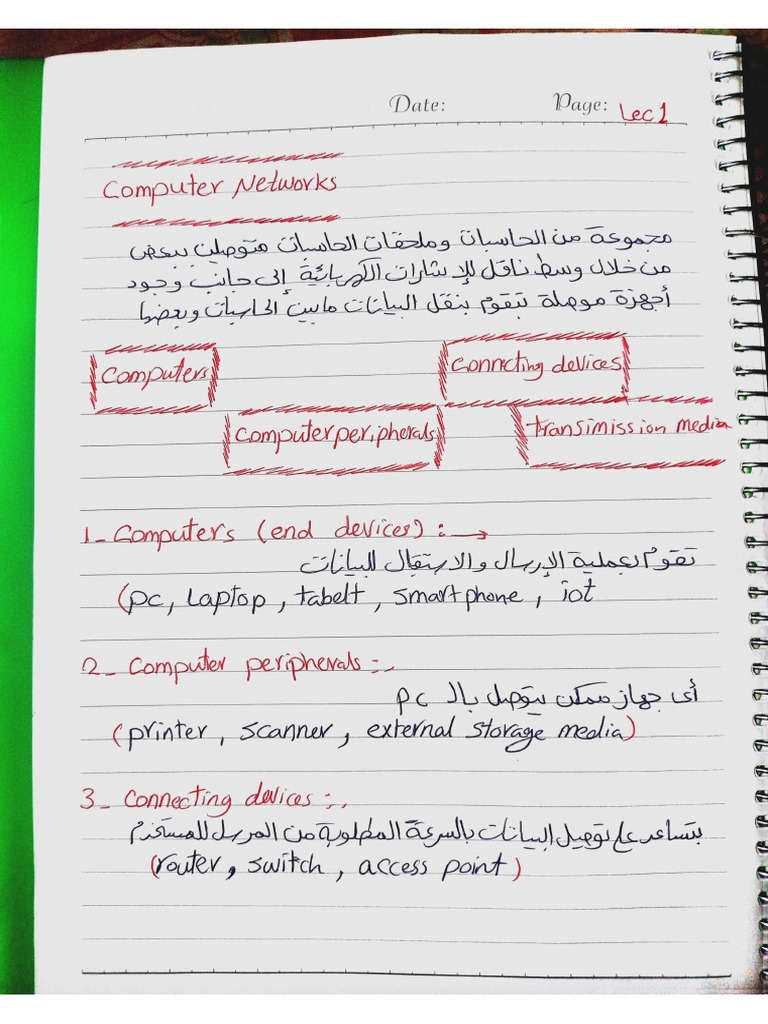 Date: Page: Lec 1
Computer Networks
مجموعة من الحاسبات وملحقات الحاسبات متوصلين ببعض
من خلال وسط ناقل للإشارات الكهربائية إلى جانب وجود
أجهزة موصلة بتقوم بنقل البيانات ما بين الحاسبات وبعضها
Computers
Conncting devices
Computer peripherals
transimission media
1- Computers (end devices) :→
تقوم بعملية الإرسال والاستقبال للبيانات
(pc, laptop, tabelt, smart phone, iot
2- Computer peripherals :.
أى جهاز ممكن يتوصل بالـ pc
(printer, scanner, external storage media)
3- Connecting devices :.
بتساعد على توصيل البيانات بالسرعة المطلوبة من المرسل للمستخدم
(router, switch, access point)